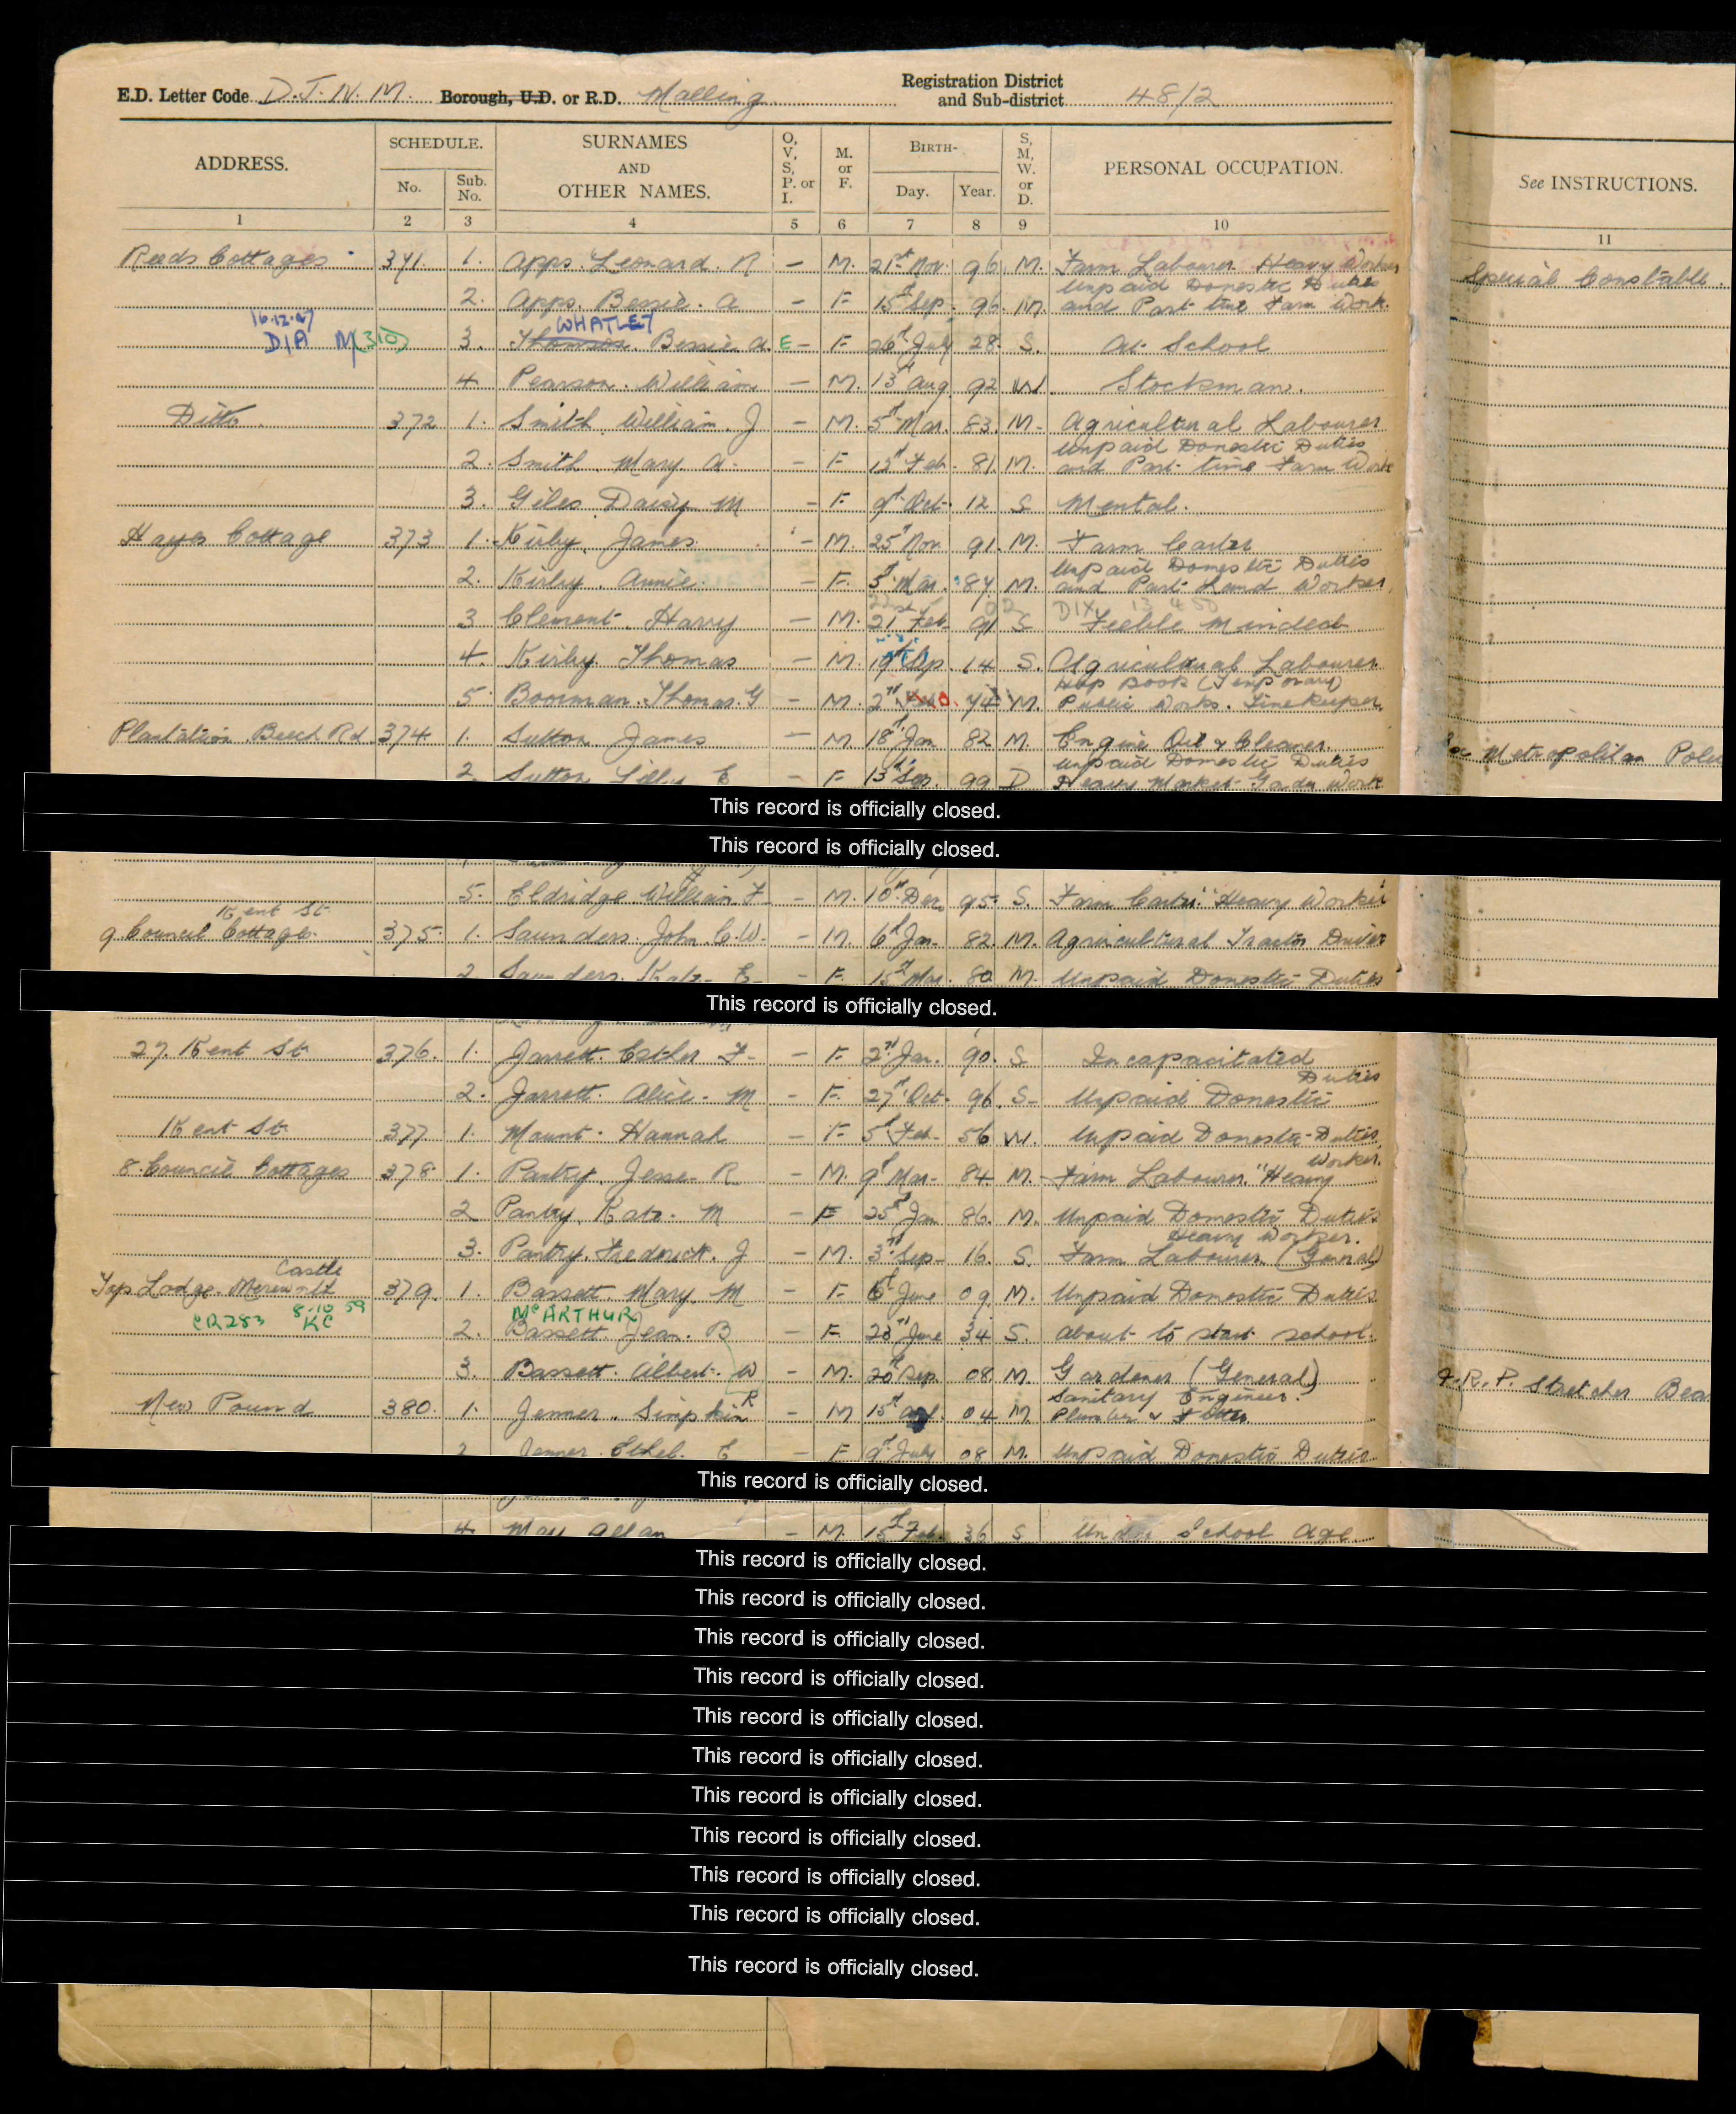 E.D. Letter Code D.J.N.M. Borough, U.D. or R.D. Malling Registration District and Sub-district 48/2
ADDRESS. SCHEDULE. No. Sub. No. SURNAMES AND OTHER NAMES. O, V, S, P. or I. M. or F. BIRTH- Day. Year. S, M, W. or D. PERSONAL OCCUPATION. See INSTRUCTIONS.
1 2 3 4 5 6 7 8 9 10 11
Reeds Cottages 371. 1. Apps. Leonard. R - M. 21st Nov. 96 M. Farm Labourer Heavy Worker Special Constable.
2. Apps. Bessie. A - F. 15th Sep. 96. M. Unpaid Domestic Duties and Part time Farm Work.
16.12.47 D/A M(310) 3. Thomson. WHATLEY Bessie A. E - F 26th July 28. S. At School
4. Pearson. William - M. 13th Aug 92 W. Stockman.
Ditto. 372 1. Smith. William. J - M. 5th Mar. 83. M. Agricultural Labourer
2. Smith. Mary A. - F 13th Feb. 81. M. Unpaid Domestic Duties and Part time Farm Work
3. Giles Daisy M - F. 9th Oct. 12 S. Mental.
Hayes Cottage 373 1. Kirby. James. - M. 25th Nov. 91. M. Farm Carter
2. Kirby. Annie. - F. 3rd Mar. M. Unpaid Domestic Duties and Part Land Worker.
3 Clement. Harry - M. 21 Feb. 91 S. Feeble Minded
4. Kirby Thomas - M. 19th Sep. 14 S. Agricultural Labourer
5. Boorman. Thomas. G - M. 2nd 74 M. Hop Book (Temporary) Public Works. Timekeeper.
Plantation. Beech Rd 374 1. Sutton. James - M 18th Jan 82 M. Engine Oil & Cleaner. Metropolitan Police
2. Sutton Lilly E - F. 13th Sep. 99 D Unpaid Domestic Duties Heavy Market Garden Work
This record is officially closed.
This record is officially closed.
5. Eldridge William F. - M. 10th Dec. 95. S. Farm Carter. "Heavy Worker
9 Council Cottage. Kent St 375. 1. Saunders. John. C. W. - M. 6th Jan. 82. M. Agricultural Tractor Driver
2. Saunders. Kate. E. - F. 15th Mar. 80 M. Unpaid Domestic Duties
This record is officially closed.
27. Kent St. 376. 1. Jarrett. Esther F. - F. 2nd Jan. 90. S. Incapacitated
2. Jarrett. Alice. M - F. 27th Oct. 96. S. Unpaid Domestic Duties
Kent St. 377 1. Mount. Hannah - F 5th Feb. 56 W. Unpaid Domestic Duties
8. Council Cottages 378. 1. Pantry. Jesse. R - M. 9th Mar. 84 M. Farm Labourer. "Heavy Worker.
2 Pantry. Kate. M - F 25th Jan 86. M. Unpaid Domestic Duties
3. Pantry. Frederick. J - M. 3rd Sep. 16. S. Heavy Worker. Farm Labourer. (General)
Top Lodge. Mereworth Castle 379. 1. Bassett. Mary. M - F 6th June 09. M. Unpaid Domestic Duties.
CR283 8.10.59 KC 2. Bassett. McARTHUR Jean. B - F. 28th June 34 S. About to start school.
3. Bassett. Albert. W - M. 20th Sep. 08 M. Gardener (General) A.R.P. Stretcher Bea
New Pound 380. 1. Jenner. Simpkin R - M 15th 04 M Sanitary Engineer. Plumber & Fitter
2 Jenner. Ethel. E - F 9th July 08 M. Unpaid Domestic Duties
This record is officially closed.
4. May Allan - M. 15th Feb. 36 S Under School Age
This record is officially closed.
This record is officially closed.
This record is officially closed.
This record is officially closed.
This record is officially closed.
This record is officially closed.
This record is officially closed.
This record is officially closed.
This record is officially closed.
This record is officially closed.
This record is officially closed.